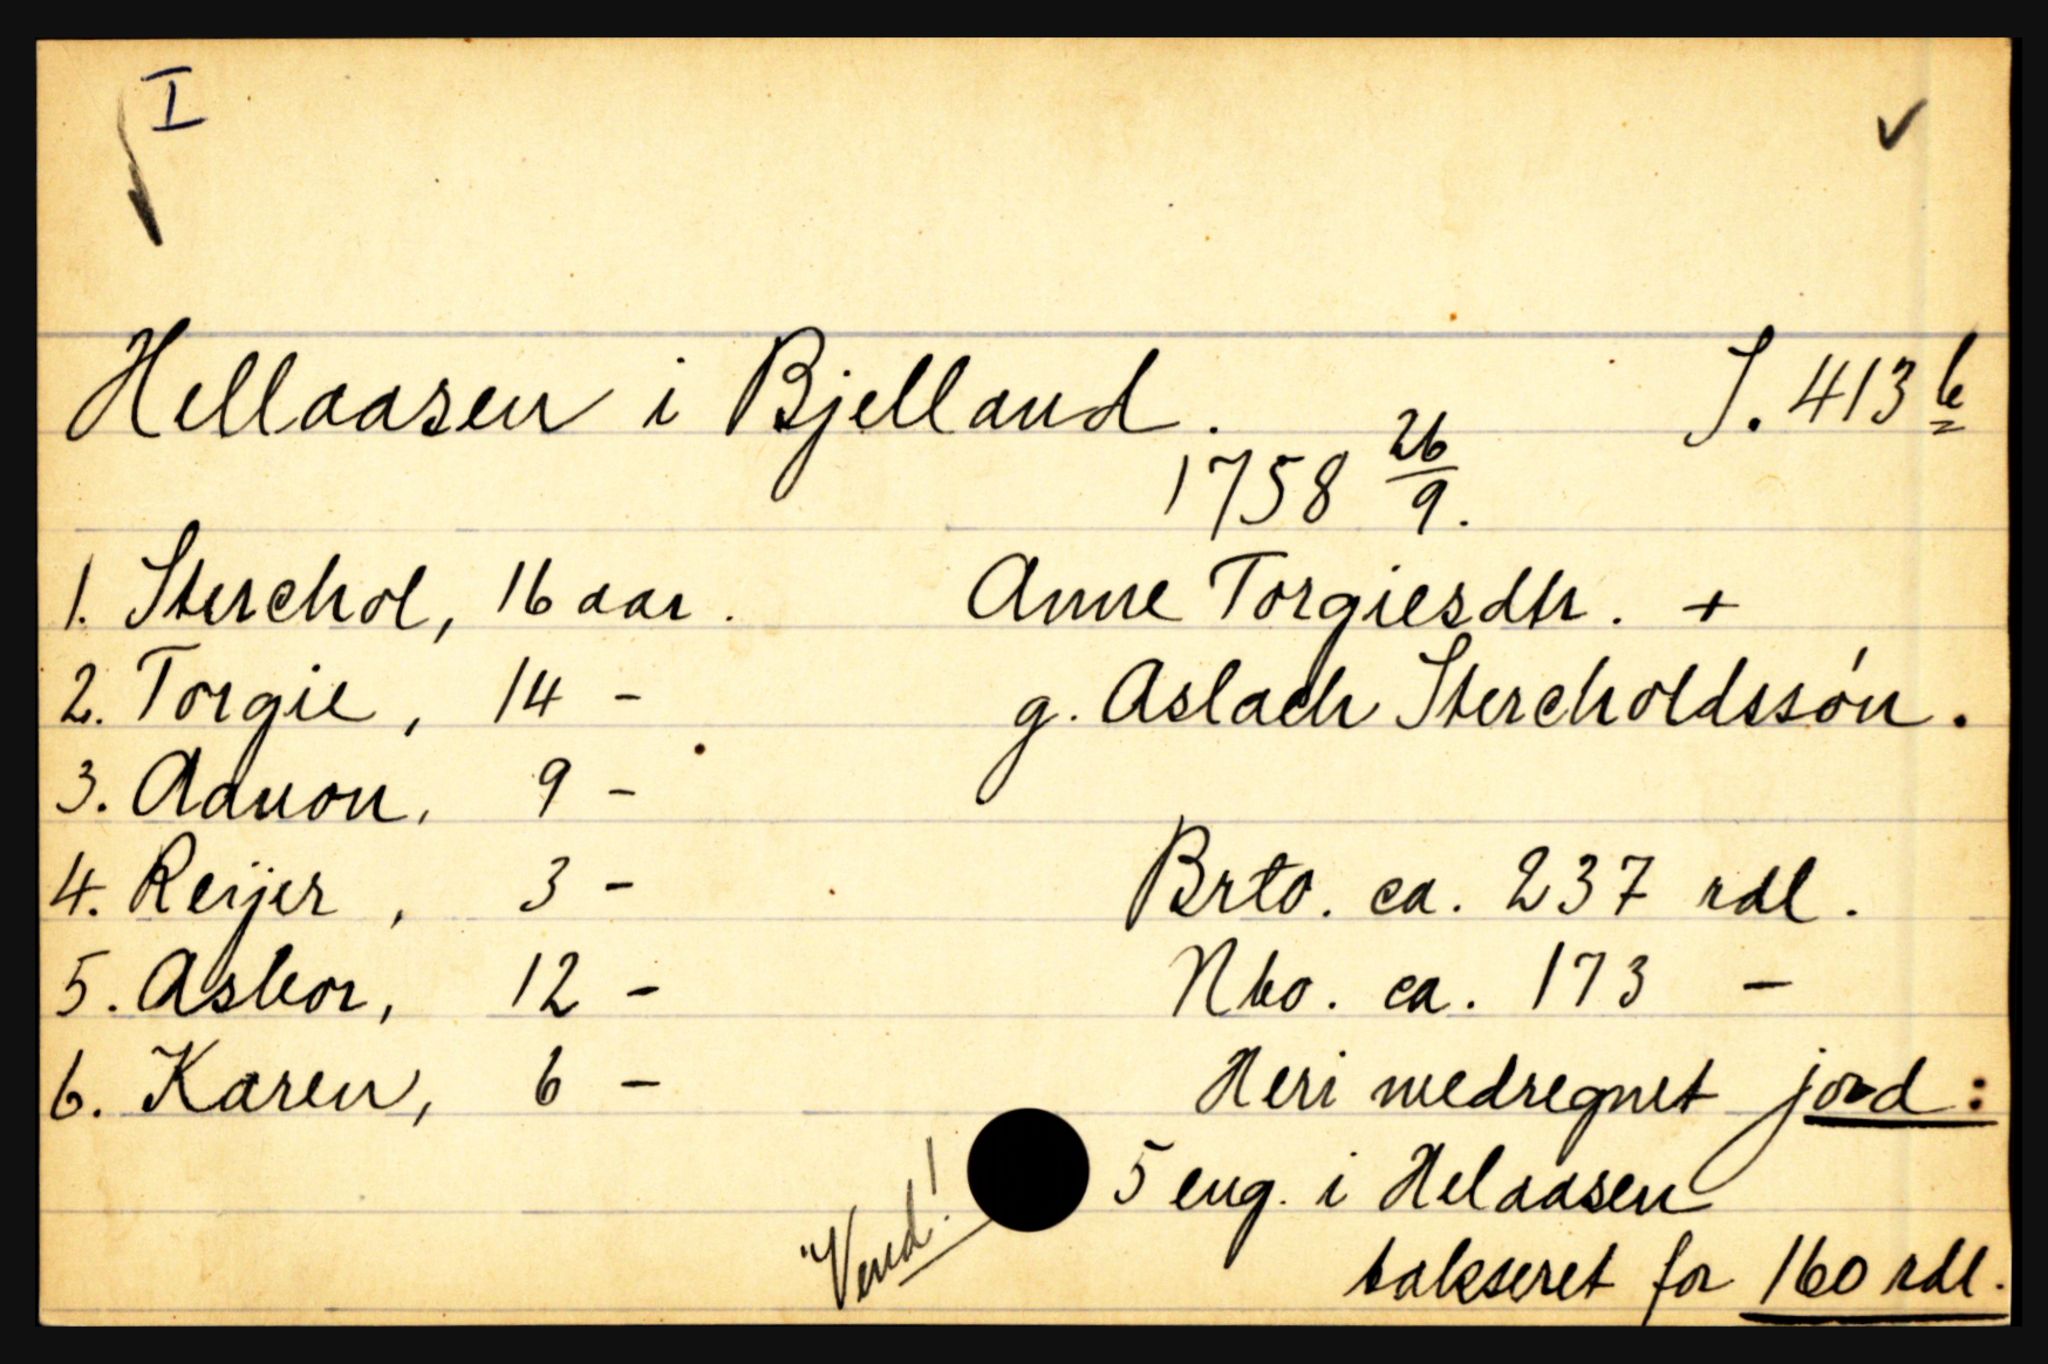 I
Hellaasen i Bjelland. S. 413 b
1758 26/9.
1. Sterchol, 16 aar. Anne Torgiesdtr. +
2. Torgie, 14 - g. Aslach Stercholdssøn.
3. Aanon, 9 -
4. Reijer, 3 - Brto. ca. 237 rdl.
5. Asbor, 12 - Nto. ca. 173 -
6. Karen, 6 - Heri medregnet jord:
5 eng. i Helaasen
takseret for 160 rdl.
"Vend!